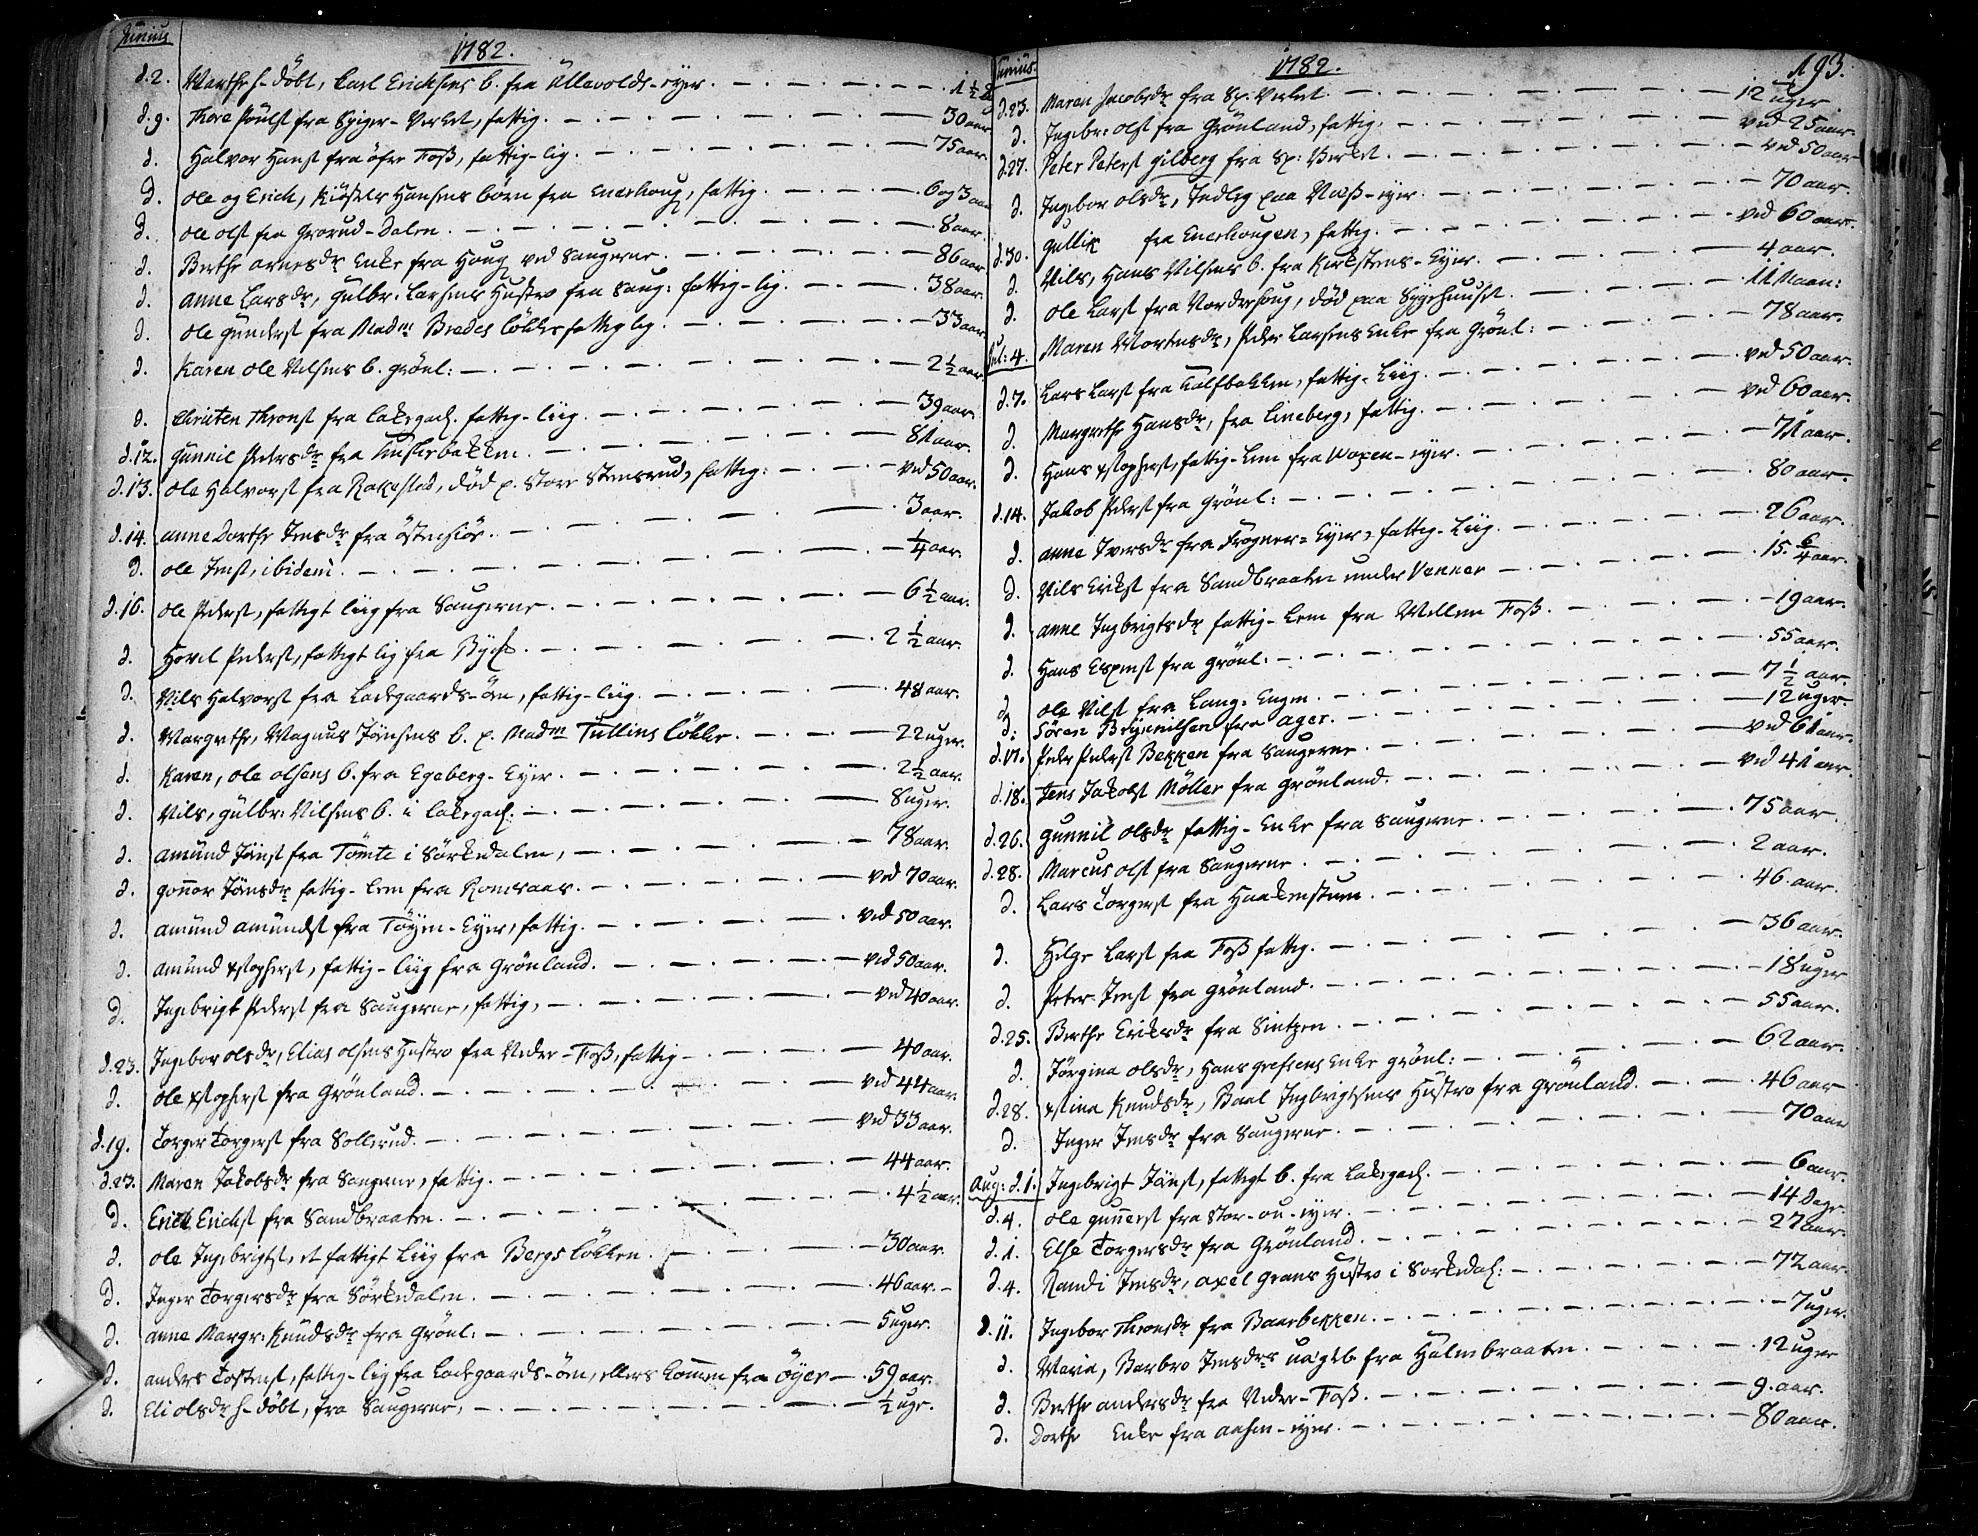 Junius
1782.
d.2. Marthe h-döbt, Carl Erichsens b. fra Ullevolds-eyer. 1½
d.9. Thore Poulst fra Spiger-Verket, fattig. 30 aar
d. Halvor Hanst fra öfre Foss, fattig-lig. 75 aar.
d. Ole og Erich, Hansens börn fra Enerhoug, fattig. 6 og 3 aar
d. Ole Olst fra Grorud-Dalen. 8 aar
d. Berthe Arnesdr Enke fra Houg ved Saugerne. 86 aar
d. Anne Larsdr, Gulbr. Larsens Hustro fra Saug: fattig-lig. 38 aar.
d. Ole Gunderst fra Madm Bredes lökke fattig lig. 33 aar.
d. Karen Ole Nilsens b. grönl: 2½ aar
d. Christen Thronst fra Lakegad. fattig-liig. 39 aar.
d.12. Gunnil Pedersdr fra bakken. 81 aar.
d.13. Ole Halvorst fra Rakestad, död p. Store Stensrud, fattig: ved 50 aar.
d.14. Anne Dorthe Jensdr fra östensiör. 3 aar.
d. Ole Jenst, ibidem. ¼ aar.
d.16. Ole Pederst, fattigt liig fra Saugerne. 6½ aar.
d. Hovel Pederst, fattigt lig fra 2½ aar.
d. Nils Halvorst fra Ladegaards-öen, fattig-liig. 48 aar.
d. Margrethe, Magnus Jönsens b. p. Madm Tullins lökke. 22 uger.
d. Karen, Ole Olsens b. fra Egeberg-Eyer. 2½ aar.
d. Nils, Gulbr: Nilsens b. i Lakegad. 8 uger.
d. Amund Jönst fra Tömte i Sörkedalen, 78 aar.
d. Gonnor Jönsdr fattig-lem fra Romsaas. ved 70 aar.
d. Amund Amundst fra Töyen-Eyer, fattig. ved 50 aar.
d. Amund xstopherst, fattig-liig fra Grönland. ved 50 aar.
d. Ingebrigt Pederst fra Saugerne, fattig, ved 40 aar.
d.23. Ingebor Olsdr, Elias Olsens Hustro fra Nedre-Foss, fattig 40 aar.
d. Ole xstopherst fra Grönland. ved 44 aar
d.19. Torger Torgerst fra Sollerud. ved 33 aar.
d.23. Maren Jakobsdr fra Saugerne, fattig. 44 aar.
d. Erich Erichst fra Sandbraaten. 4½ aar.
d. Ole Ingebrigtst, et fattigt Liig fra Bergs lökken. 30 aar.
d. Inger Torgersdr fra Sörkedalen. 46 aar.
d. Anne Margr: Knudsdr fra Grönl: 5 uger.
d. Anders Tostenst, fattig-lig fra Ladegaards-öen, ellers kommen fra Öyer 59 aar.
d. Eli Olsdr h-döbt, fra Saugerne, ½ uge.
Junius.
1782.
193.
d.23. Maren Jacobsdr fra Sp: Verket. 12 uger
d. Ingebr. Olst fra Grönland, fattig. ved 25 aar
d.27. Peter Peterst Gilberg fra Sp: Verket. ved 50 aar
d. Ingebor Olsdr, Indlig paa Næss-eyer. 70 aar.
d.30. Gullik fra Enerhougen, fattig. ved 60 aar.
d. Nils, Hans Nilsens b. fra Eyer. 4 aar.
d. Ole Larst fra Nordrehoug, död paa Sygehuuset. 11 Maan:
Jul: 4. Maren Mortensdr, Peder Larsens Enke fra Grönl: 78 aar.
d.7. Lars Larst fra Kalfbakken, fattig-Liig. ved 50 aar.
d. Margrethe Hansdr, fra Lineberg, fattig. ved 60 aar.
d. Hans xstopherst, fattig-Lem fra Woxen-eyer. 71 aar.
d.14. Jakob Pederst fra Grönl: 80 aar.
d. Anne Iversdr fra Frogner-Eyer, fattig-Liig. 26 aar.
d. Nils Erikst fra Sandbraaten under Venner 15. 6/4 aar.
d. Anne Ingbrigtsdr fattig-Lem fra Mellem Foss. 19 aar.
d. Hans Espenst fra Grönl. 55 aar.
d. Ole Nilst fra Lang-Engen. 7½ aar.
d. Sören Brynnilsen fra Ager. 12 uger.
d.17. Peder Pederst Bekken fra Saugerne ved 61 aar.
d.18. Jens Jakobst Möller fra Grönland. ved 41 aar.
d.26. Gunnil Olsdr fattig-Enke fra Saugerne. 75 aar.
d.28. Marcus Olst fra Saugerne. 2 aar.
d. Lars Torgerst fra Haakenstuen. 46. aar.
d. Helge Larst fra Foss fattig. 36 aar.
d. Peter Jenst fra Grönland. 18 uger
d.25. Berthe Eriksdr fra Sintzen. 55 aar.
d. Jörgine Olsdr, Hans Enke Grönl: 62 aar.
d.28. xstine Knudsdr, Baal Ingbrigtsens Hustro fra Grönland. 46 aar
d. Inger Jensdr fra Saugerne. 70 aar
Aug: d.1. Ingebrigt Jönst, fattigt b. fra Lakegad. 6 aar.
d.4. Ole Gunnerst fra Stor-ou-eyer. 14 Dage
d.1. Else Torgersdr fra Grönland. 27 aar.
d.4. Randi Jensdr, Axel Grans Hustro i Sorkedal: 72 aar.
d.11. Ingebor Thronsdr fra Baarbekken. 7 uger.
d. Maria, Barbro Jensdrs uægte fra Holmbraaten. 12 uger
d. Berthe Andersdr fra Nedre-Foss. 9. aar.
d. Dorthe Enke fra 80 aar.